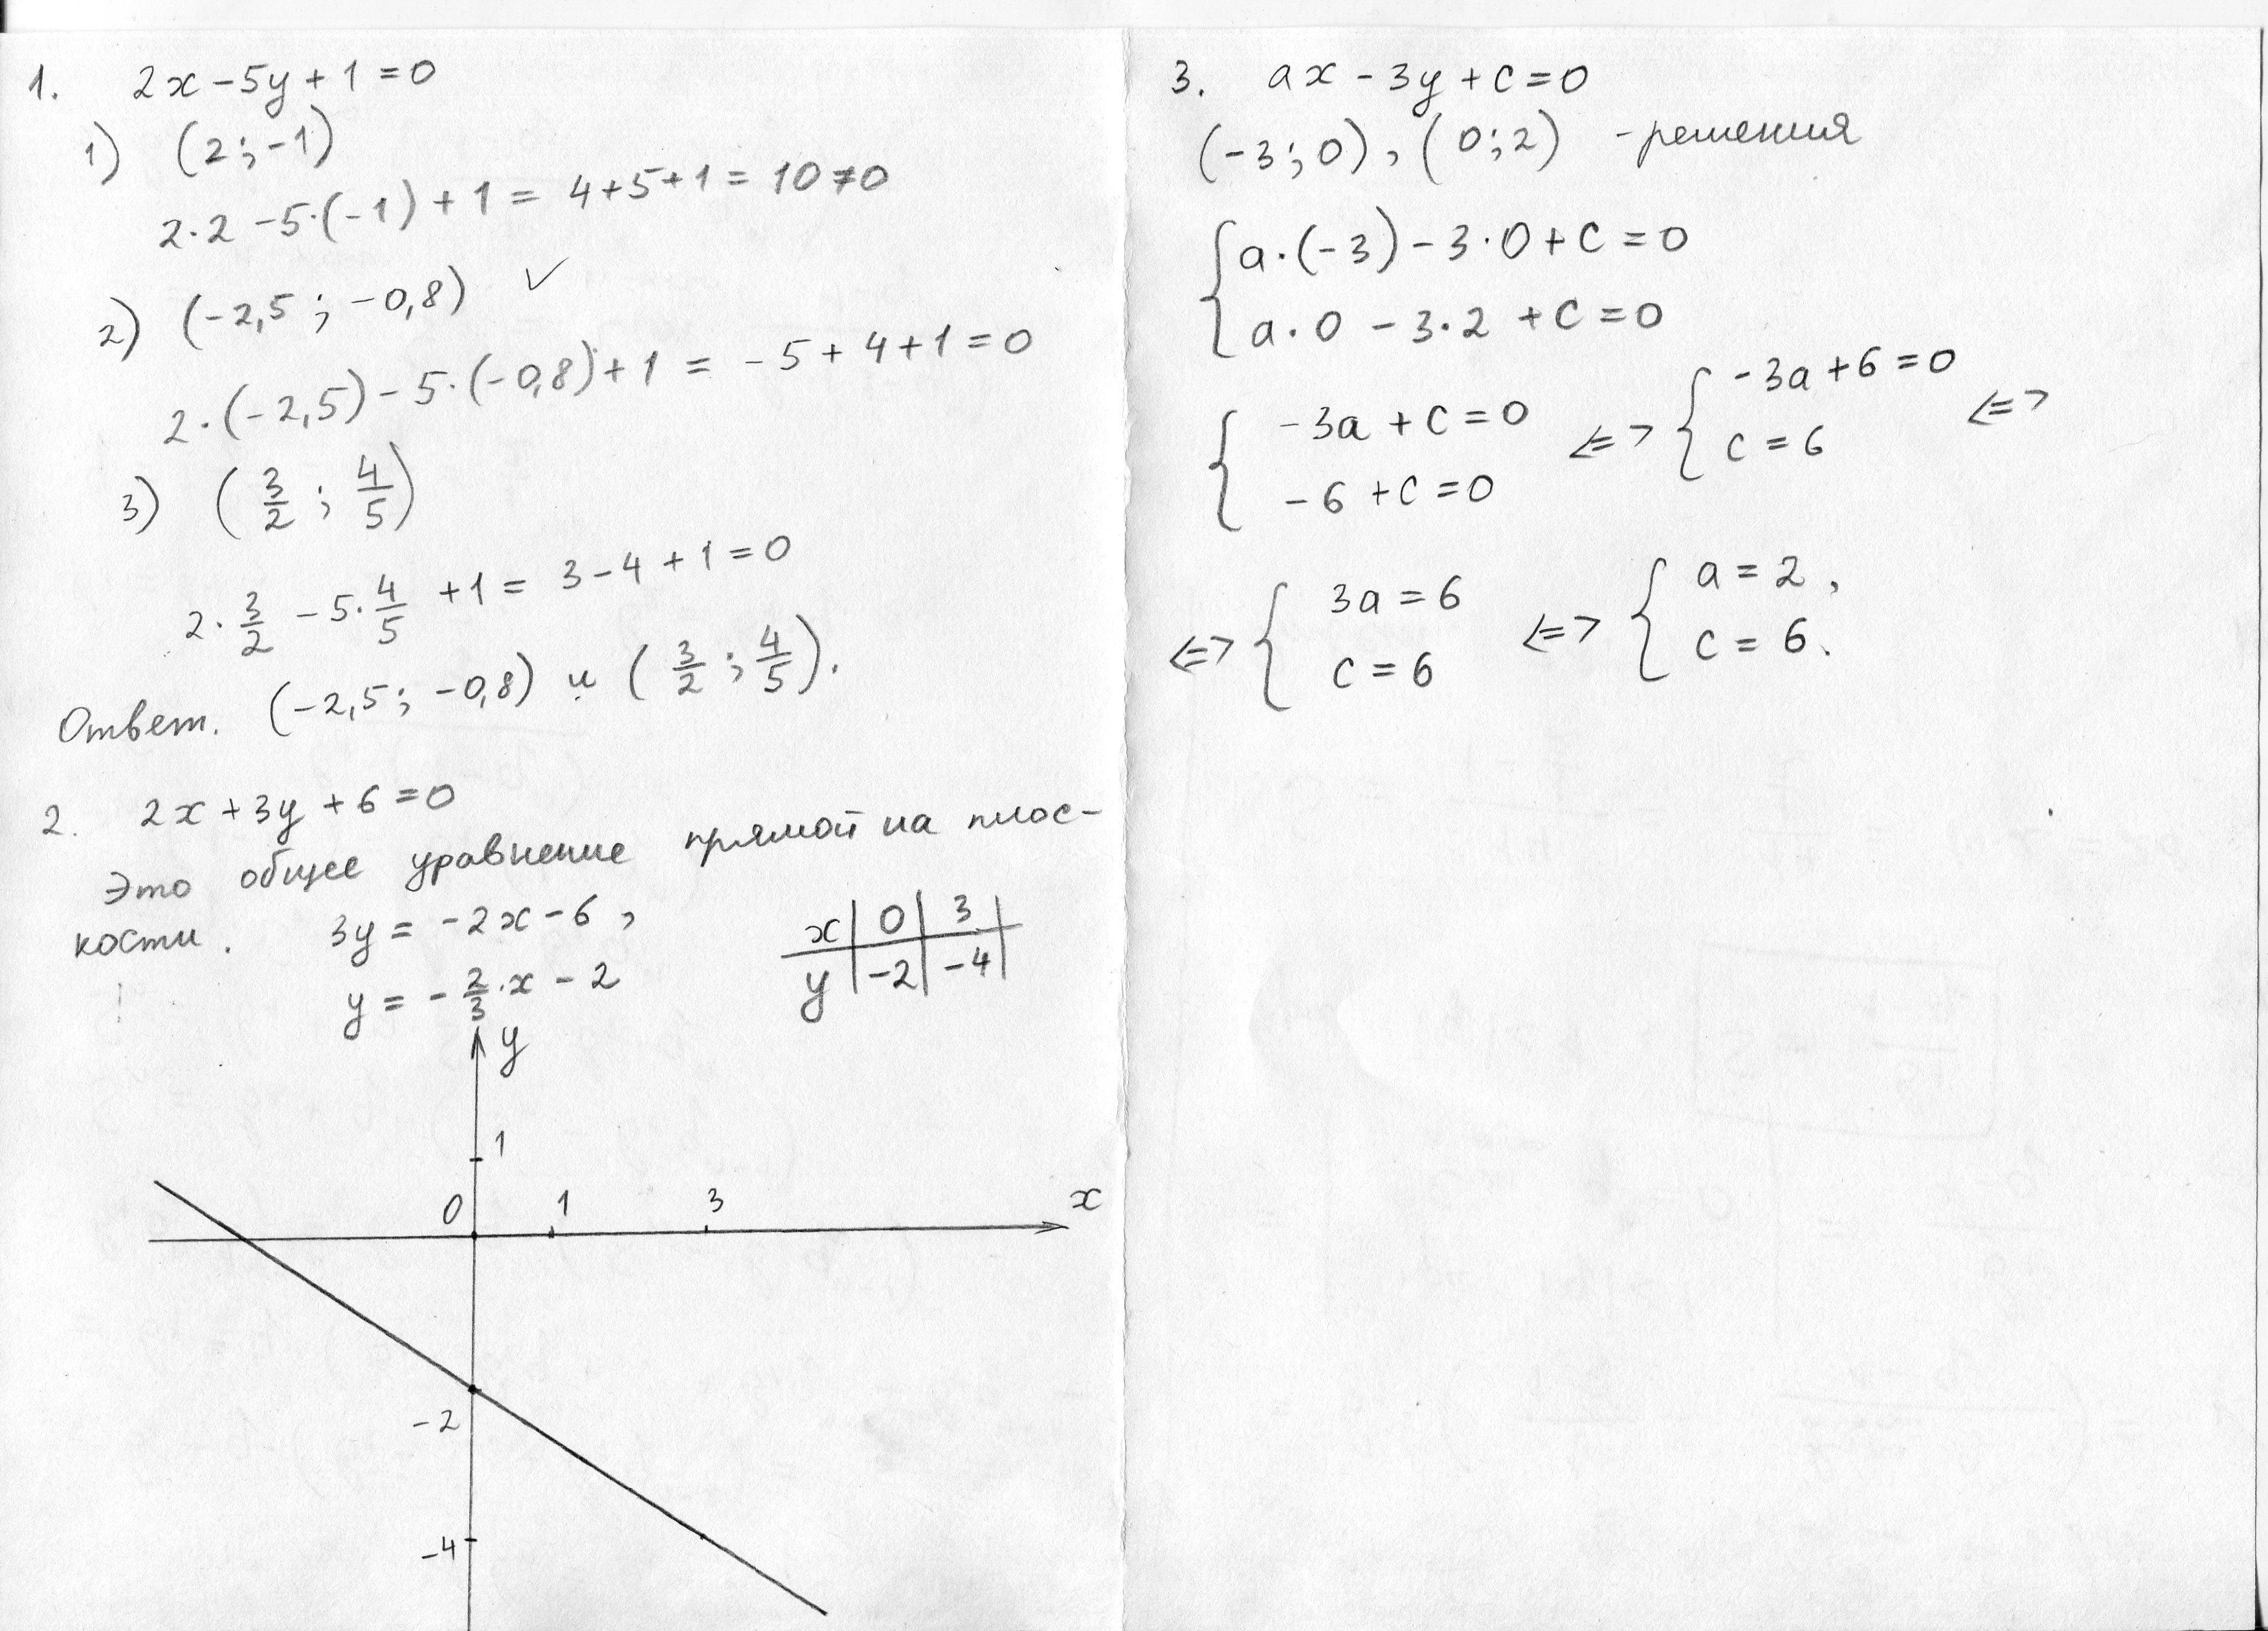 1. 2x - 5y + 1 = 0
1) (2; -1)
2·2 - 5·(-1) + 1 = 4 + 5 + 1 = 10 ≠ 0
2) (-2,5; -0,8) ✓
2·(-2,5) - 5·(-0,8) + 1 = -5 + 4 + 1 = 0
3) (3/2; 4/5)
2·3/2 - 5·4/5 + 1 = 3 - 4 + 1 = 0
Ответ. (-2,5; -0,8) и (3/2; 4/5).
2. 2x + 3y + 6 = 0
Это общее уравнение прямой на плос-
кости. 3y = -2x - 6,
y = -2/3·x - 2
x | 0 | 3 |
y | -2 | -4 |
y
1
0 1 3 x
-2
-4
3. ax - 3y + c = 0
(-3; 0), (0; 2) - решения
{ a·(-3) - 3·0 + c = 0
a·0 - 3·2 + c = 0
{ -3a + c = 0
-6 + c = 0
<=> { -3a + 6 = 0
c = 6 <=>
<=> { 3a = 6
c = 6
<=> { a = 2,
c = 6.